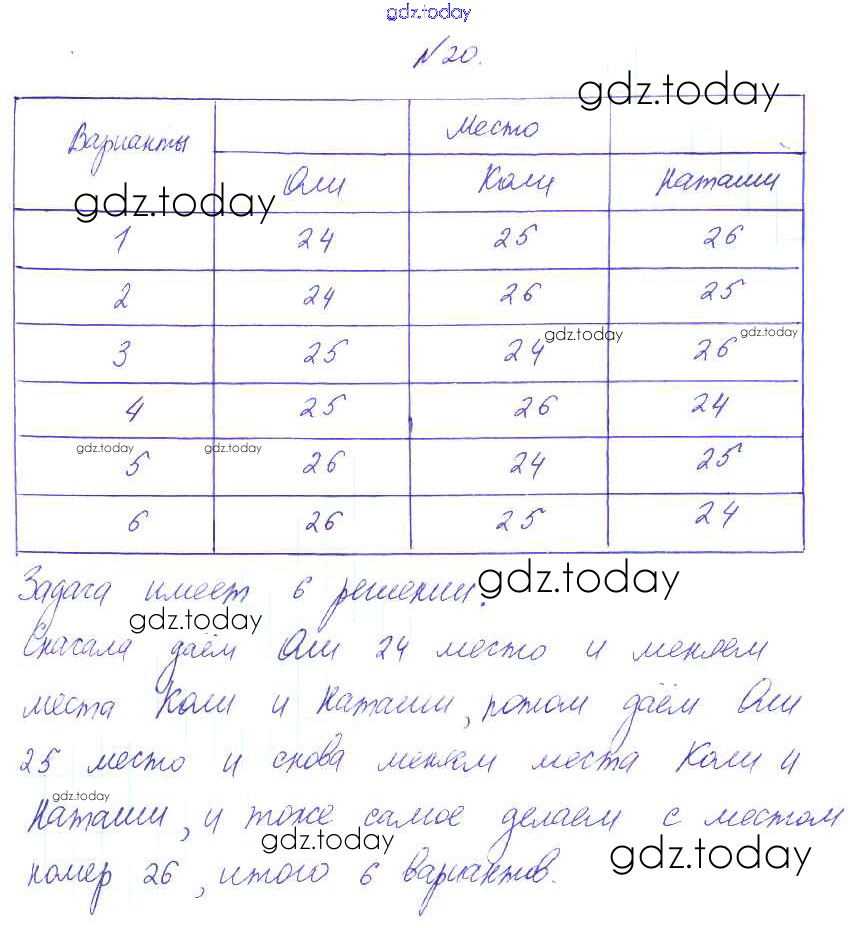 gdz.today
№20.
gdz.today
Варианты Место
Оли Коли Наташи
gdz.today
1 24 25 26
2 24 26 25
gdz.today gdz.today
3 25 24 26
4 25 26 24
gdz.today gdz.today
5 26 24 25
6 26 25 24
Задача имеет 6 решений. gdz.today
gdz.today
Сначала даём Оли 24 место и меняем
места Коли и Наташи, потом даём Оли
25 место и снова меняем места Коли и
gdz.today
Наташи, и тоже самое делаем с местом
gdz.today gdz.today
номер 26, итого 6 вариантов.